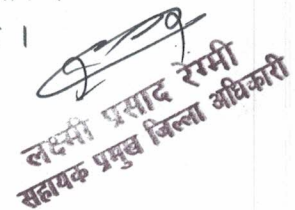 ।
लक्ष्मी प्रसाद रेग्मी
सहायक प्रमुख जिल्ला अधिकारी